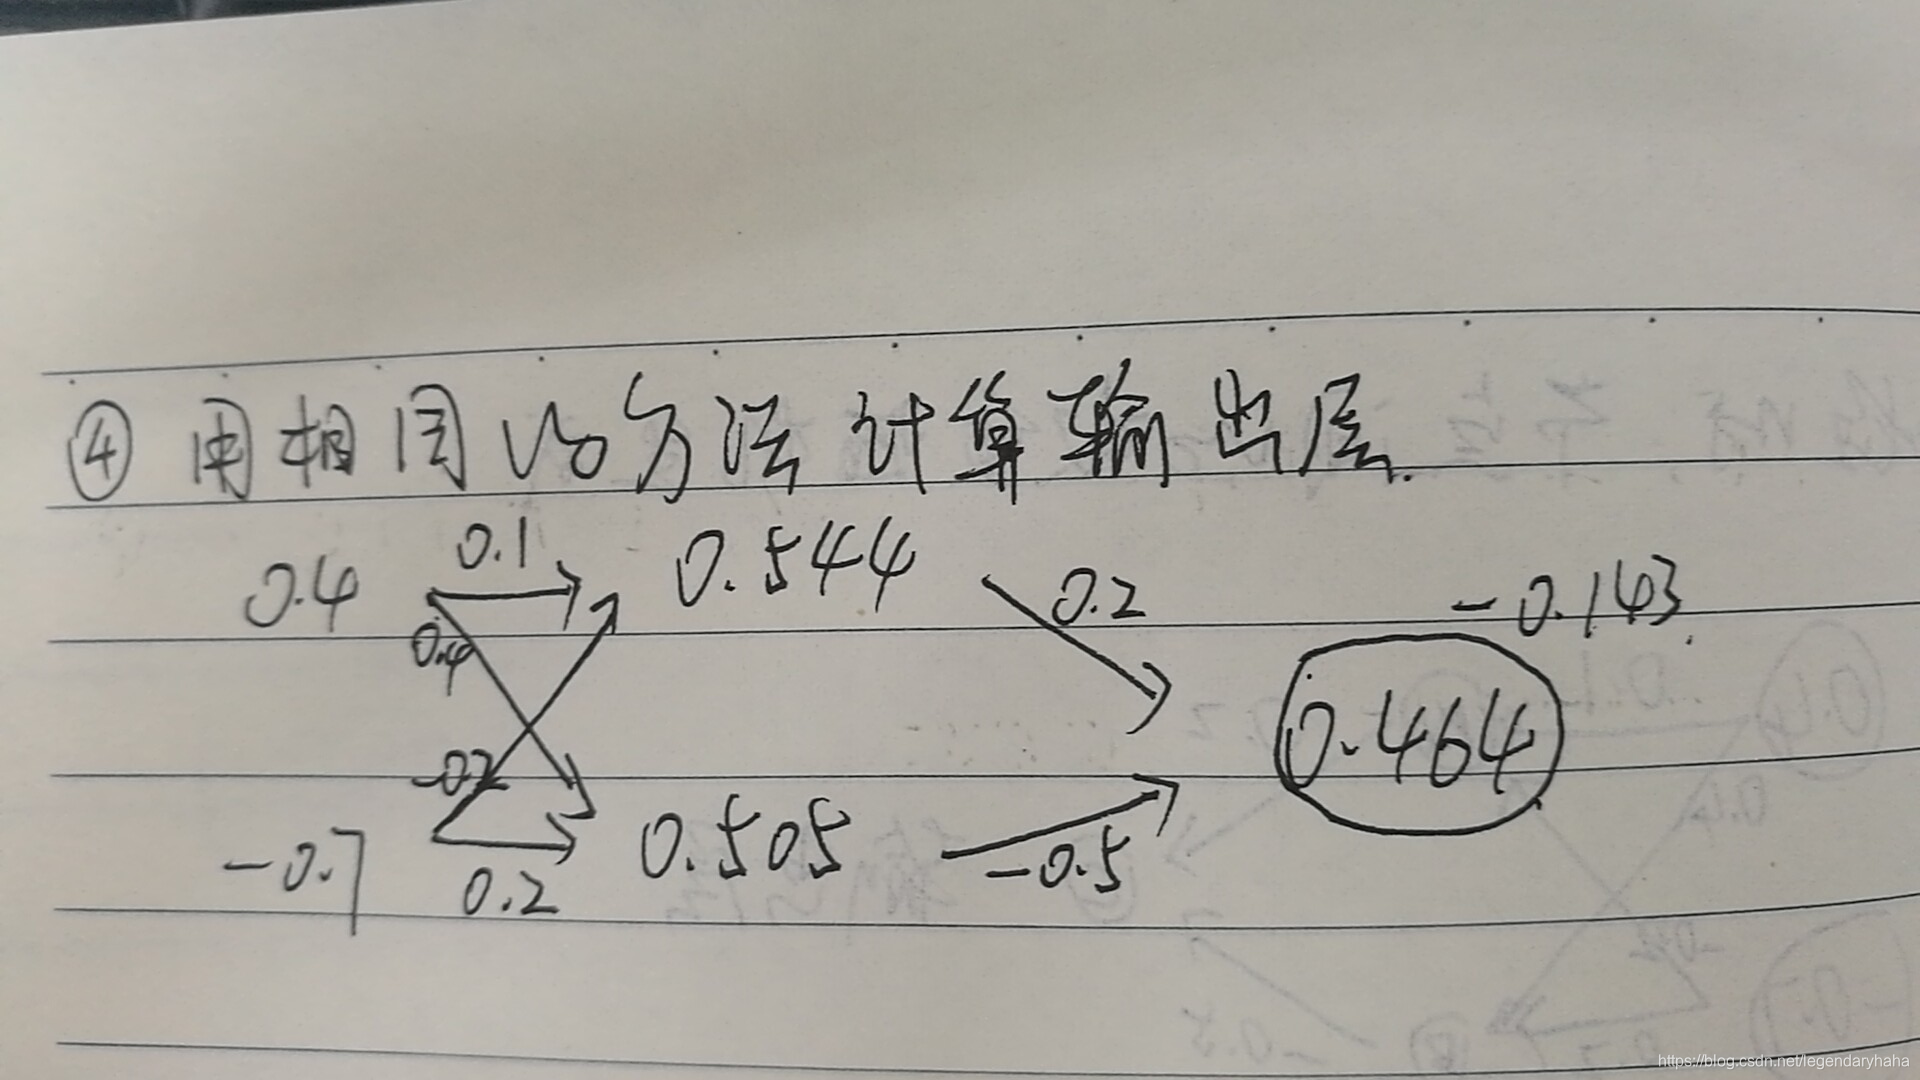 ④ 用相同的方法计算输出层.
0.4 0.1 0.544 0.2 -0.143
0.4
-0.2 0.464
-0.7 0.2 0.505 -0.5
https://blog.csdn.net/legendaryhaha